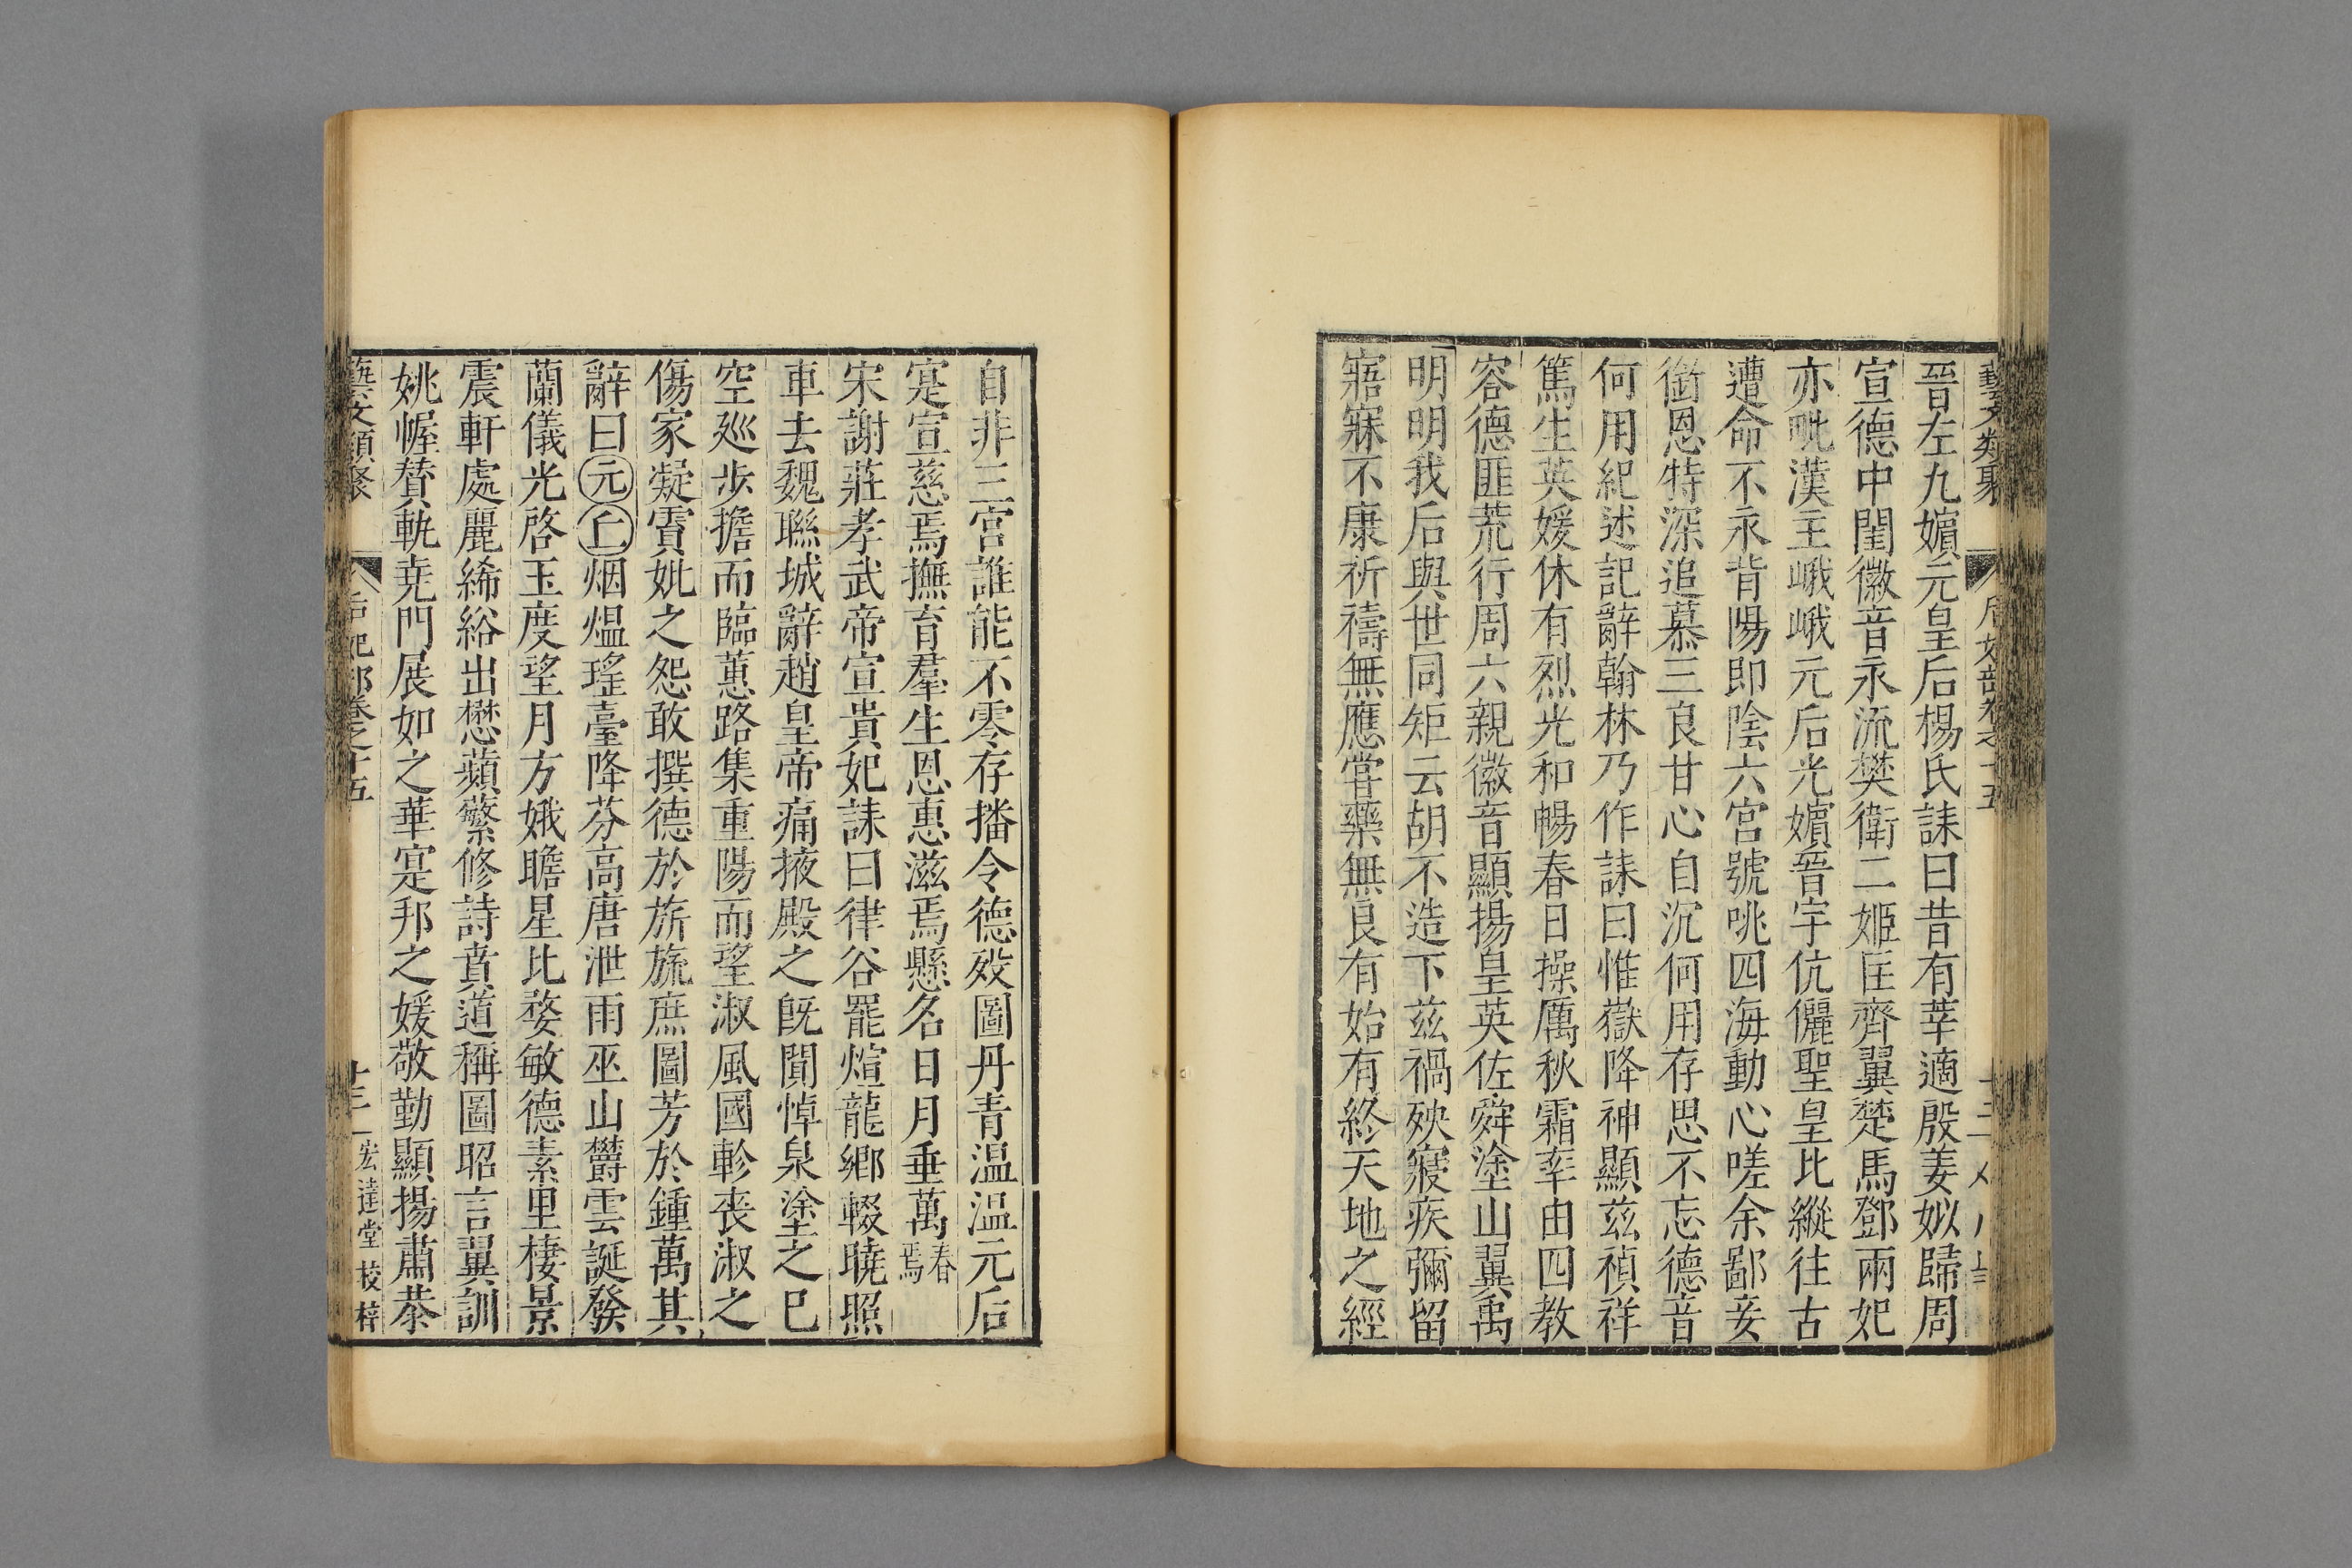 藝文類聚 后妃部卷之十五
晉左九嬪元皇后楊氏誄曰昔有莘適殷姜姒歸周
宣德中閨徽音永流樊衛二姬匡齊翼楚馬鄧兩妃
亦毗漢主峨峨元后光嬪晉宇伉儷聖皇比縱往古
遭命不永背陽即陰六宮號咷四海動心嗟余鄙妾
銜恩特深追慕三良甘心自沉何用存思不忘德音
何用紀述記辭翰林乃作誄曰惟嶽降神顯茲禎祥
篤生英媛休有烈光和暢春日操厲秋霜率由四教
容德匪荒行周六親徽音顯揚皇英佐舜塗山翼禹
明明我后與世同矩云胡不造下茲禍殃寢疾彌留
寤寐不康祈禱無應嘗藥無良有始有終天地之經
自非三宮誰能不零存播令德歿圖丹青温温元后
寔宣慈焉撫育羣生恩惠滋焉懸名日月垂萬春焉
宋謝莊孝武帝宣貴妃誄曰律谷罷煊龍鄉輟曉照
車去魏聮城辭趙皇帝痛掖殿之旣閴悼泉塗之巳
空廵步擔而臨蕙路集重陽而望淑風國軫喪淑之
傷家凝霣妣之怨敢撰德於旂旒庶圖芳於鍾萬其
辭曰元丄烟煴瑤臺降芬高唐泄雨巫山欝雲誕發
蘭儀光啓玉度望月方娥瞻星比婺敏德素里棲景
震軒處麗絺綌出懋蘋蘩修詩賁道稱圖昭言翼訓
姚幄贊軌堯門展如之華寔邦之媛敬勤顯揚肅恭
藝文類聚 后妃部卷之十五 十三 宏達堂校梓